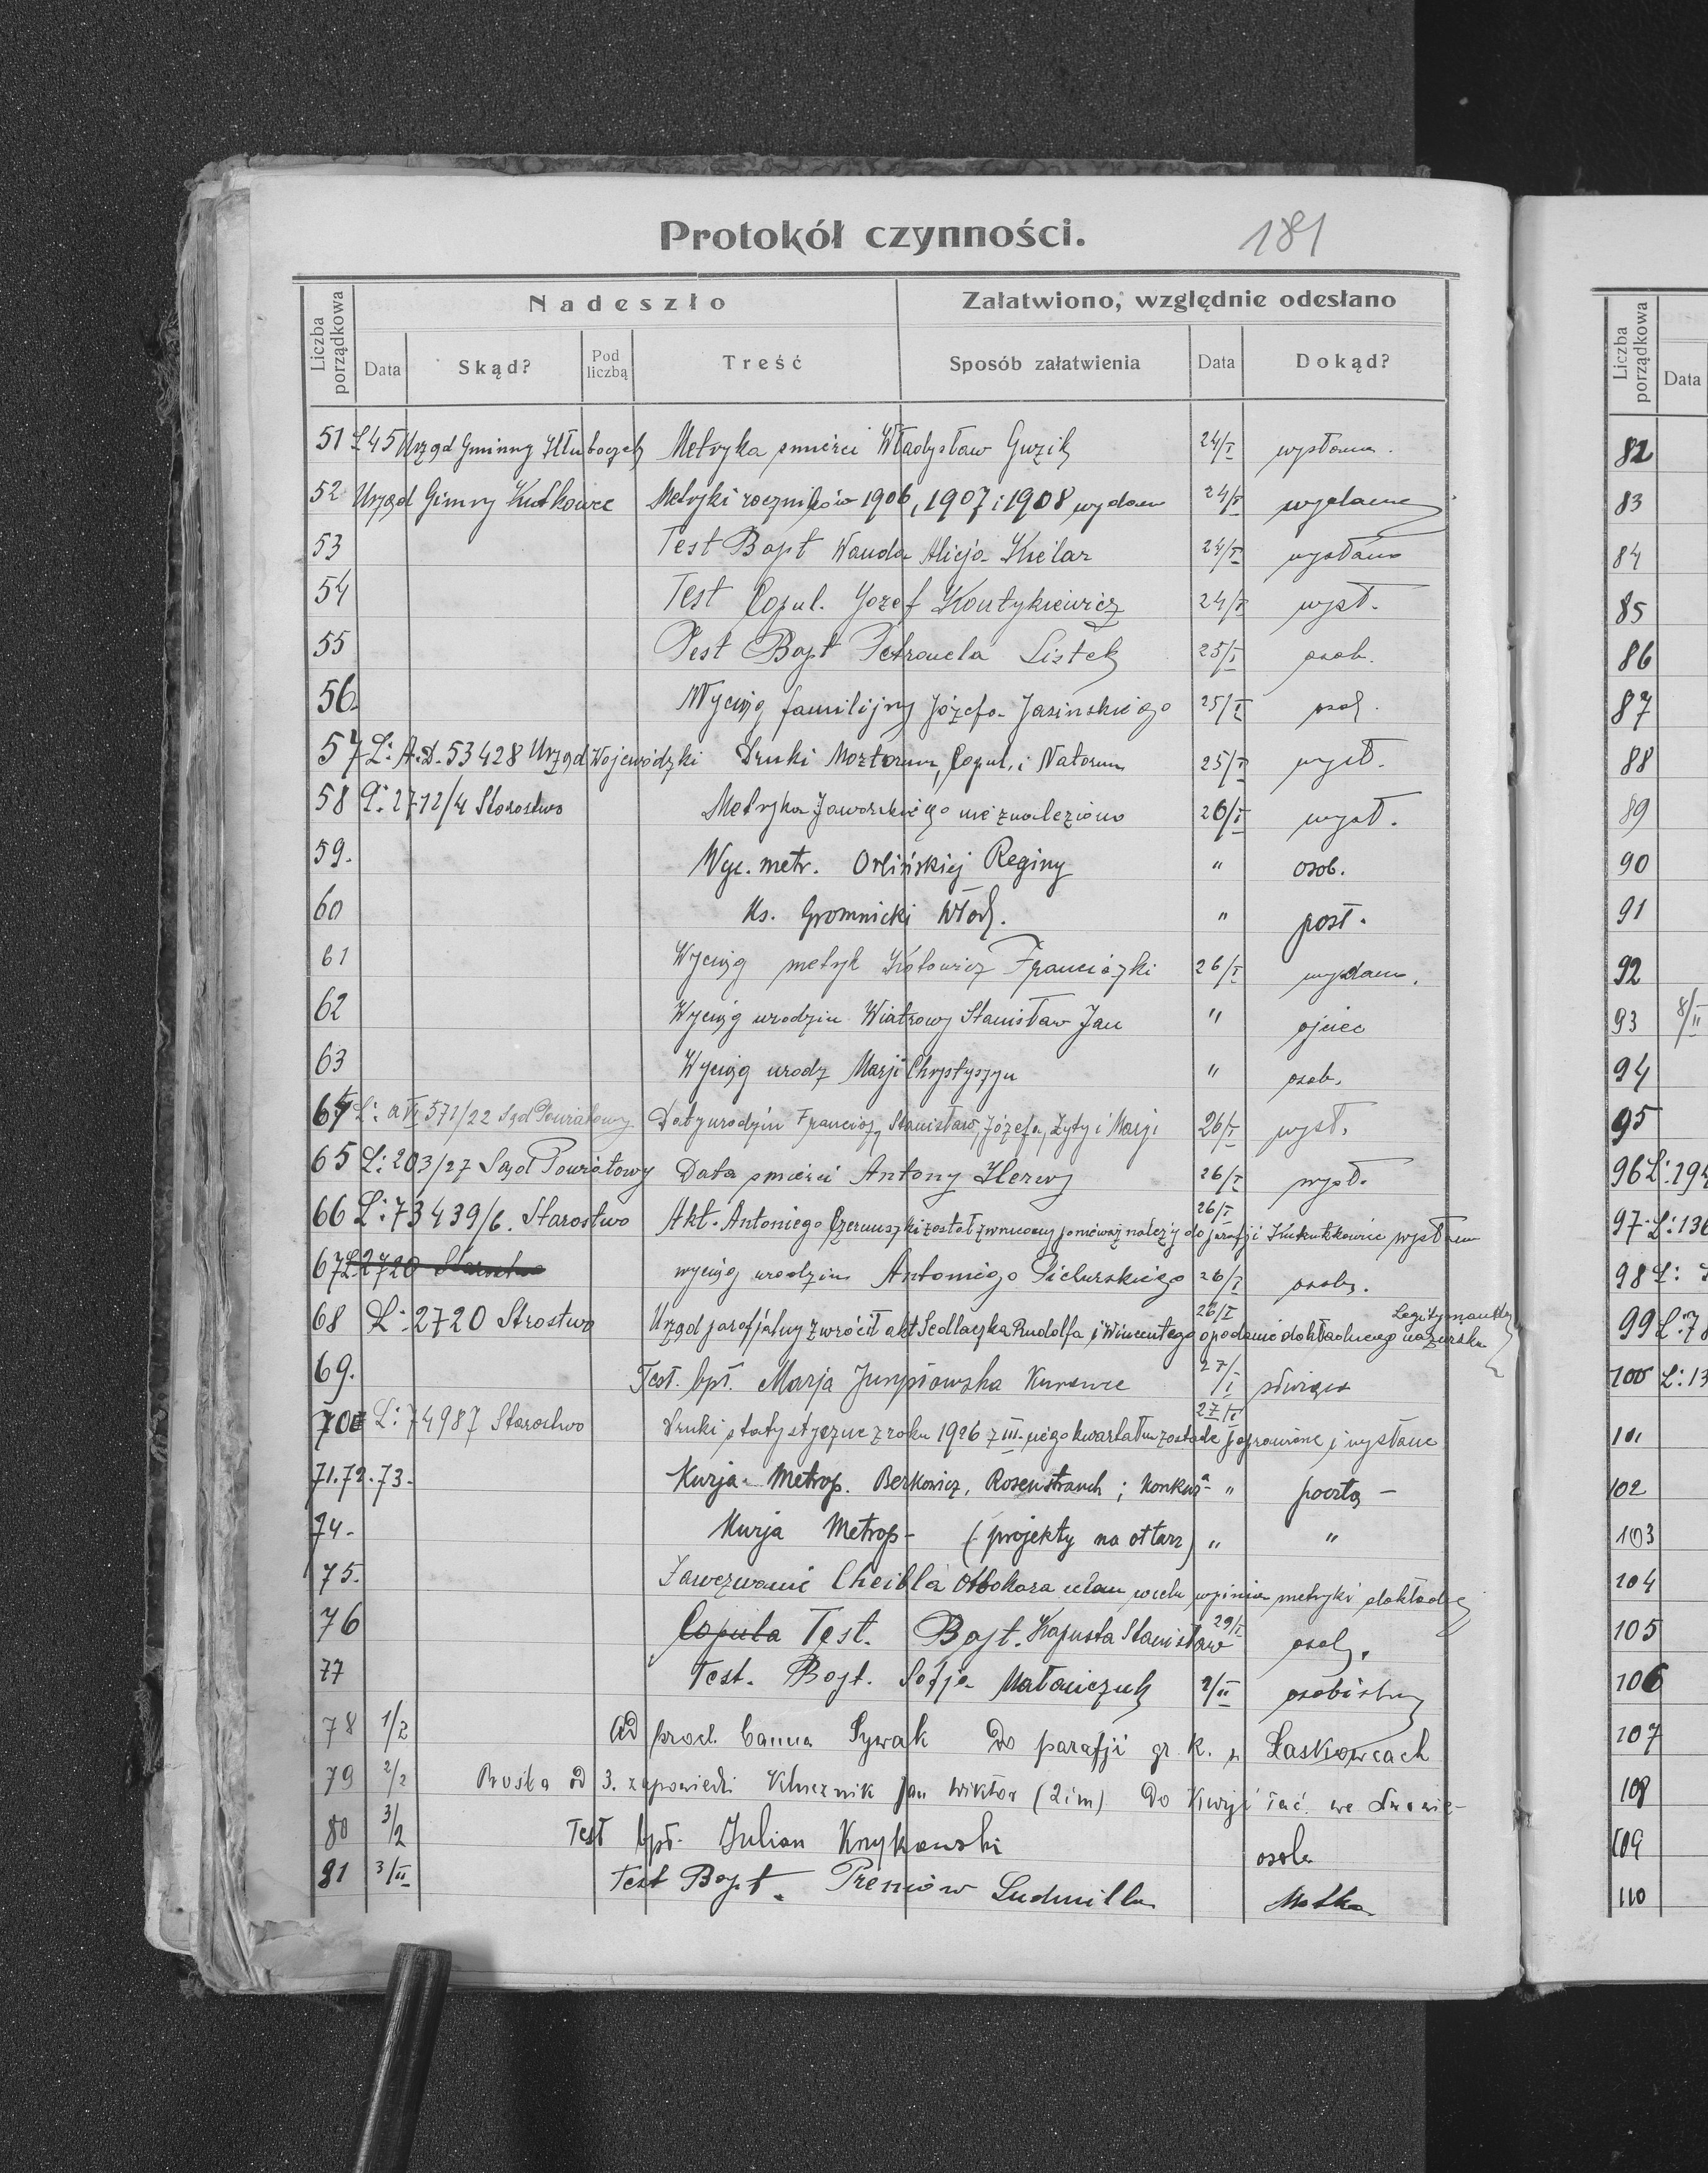 Protokół czynności. 181
Nadeszło Załatwiono, względnie odesłano
Liczba porządkowa Data Skąd? Pod liczbą Treść Sposób załatwienia Data Dokąd?
51 L45 Urząd Gminny Hłuboczek Metryka śmierci Władysław Guzik 24/I wysłana.
52 Urząd Gimny Kutkowce Metryki roczników 1906, 1907 i 1908 wydane 24/I wydane
53 Test Bapt Wanda Alicja Kielar 24/I wysłano
54 Test Copul. Jozef Kontykiewicz 24/I wysł.
55 Test Bapt Petronela Listek 25/I osob.
56. Wyciąg familijny Józefa Jasinskiego 25/I osob.
57 L: A.D. 53428 Urząd Wojewódzki Druki Mortorum, Copul. i Natorum 25/I wysł.
58 L: 2712/4 Starostwo Metryka Jaworskiego nie znaleziono 26/I wysł.
59. Wyc. metr. Orlińskiej Reginy " osob.
60 Ks. Gromnicki Włod. " post.
61 Wyciąg metryk Kotowicz Franciszki 26/I wydano.
62 Wyciąg urodzin Wiatrowy Stanisław Jan " ojciec
63 Wyciąg urodz Marji Chrystyszyn " osob.
64 L: 571/22 Sąd Powiatowy Daty urodzin Francisz, Stanisław, Józefa, Zyty i Marji 26/I wysł.
65 L: 203/27 Sąd Powiatowy Data śmierci Antony Herwy 26/I wysł.
66 L: 73439/6. Starostwo Akt. Antoniego został zwrocony ponieważ należy do parafji wysłano 26/I
67 L2720 Starostwo wyciąg urodzin Antoniego 26/I osob.
68 L: 2720 Strostwo Urząd parafjalny zwrócił akt Sedlaczka Rudolfa i Wincentego o podanie dokładnego nazwiska 26/I
69. Test. bpt. Marja Kurowce 27/I
70 L: 74987 Starostwo Druki statystyczne z roku 1926 z III. kwartału zostałe poprawione i wysłane 27/I
71.72.73. Kurja Metrop. Berkowicz, Rosenstrauch; Konkus " pocztą -
74- Kurja Metrop- (projekty na ołtarz) " "
75. Zawezwanie Cheibla Ottokara metryki
76 Copula Test. Bapt. Kapusta Stanisław 29/I osob.
77 Test. Bapt. Sofja Małaniczuk 2/II osobistny
78 1/2 Od procl. Canna Sywak Do parafji gr. k. w Łaskowcach
79 2/2 Prośba od 3. zapowiedzi Klucznik Jan Wiktor (2im) Do Kurji łać. we Lwowie-
80 3/2 Test bpt. Julian Krykowski osob
81 3/II Test Bapt. Preniów Ludmilla Matka
Liczba porządkowa Data
82
83
84
85
86
87
88
89
90
91
92
93 8/II
94
95
96 L: 194
97 L: 136
98 L:
99 L: 78
100 L: 13
101
102
103
104
105
106
107
108
109
110